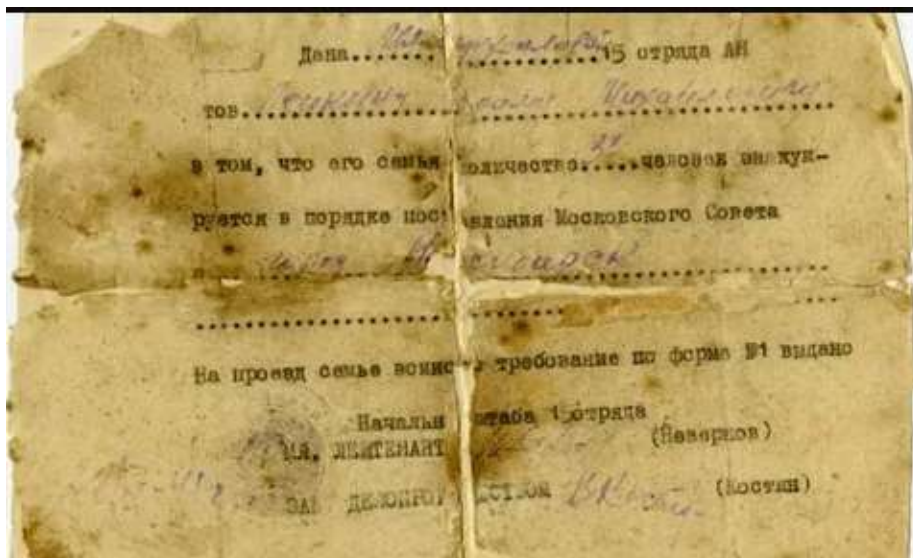 Дана.......................15 отряда АН
тов.......................Михайловичу
в том, что его семья количество.....человек эвакуи-
руется в порядке постановления Московского Совета
в город
На проезд семье воинское требование по форме №1 выдано
Начальник штаба 15 отряда
МЛ. ЛЕЙТЕНАНТ (Неверков)
ЗАВ ДЕЛОПРОИЗВОДСТВОМ (Костин)